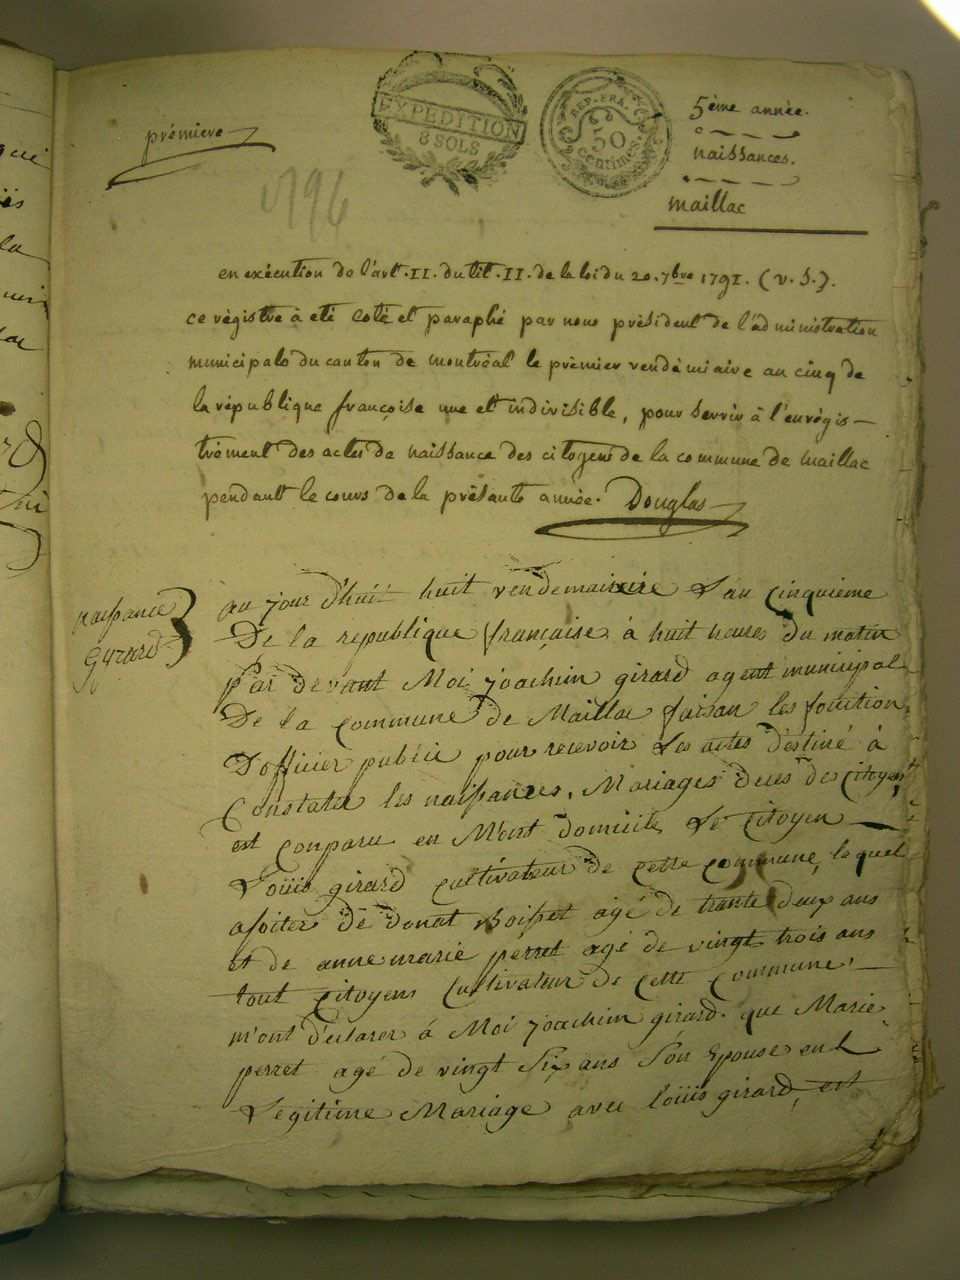 première
EXPEDITION
8 SOLS
REP. FRA.
50
centimes.
5ème année.
naissances.
maillac
1796
en exécution de l'art. II. du tit. II. de la loi du 20. 7bre 1791. (v. s.).
ce régistre à eté coté et paraphé par nous président de l'administration
municipale du canton de montréal le prémier vendémiaire au cinq de
la république françoise une et indivisible, pour servir à l'enrégis-
trément des actes de naissance des citoyens de la commune de maillac
pendant le cours de la présante année. Douglas
naissance
Gyrard
au jour d'huit huit vendemaireire L'au cinquieme
De la republique française à huit heures du matin
par devant Moi joachim girard agent municipal
De la commune de Maillac faisan les fonction
D'officier public pour recevoir Les actes déstiné à
Constater les naissances, Mariages deces des citoyens
est Conparu en Mont domicile Le Citoyen
Loüis girard cultivateur de cette commune, lequel
asister de donat Boisset agé de trante deux ans
et de anne marie perret agé de vingt trois ans
tout Citoyens Cultivateur de cette commune,
m'ont déclarer à Moi joachim girard que Marie
perret agé de vingt six ans Són Epouse en
Légitime Mariage avec loüis girard, est